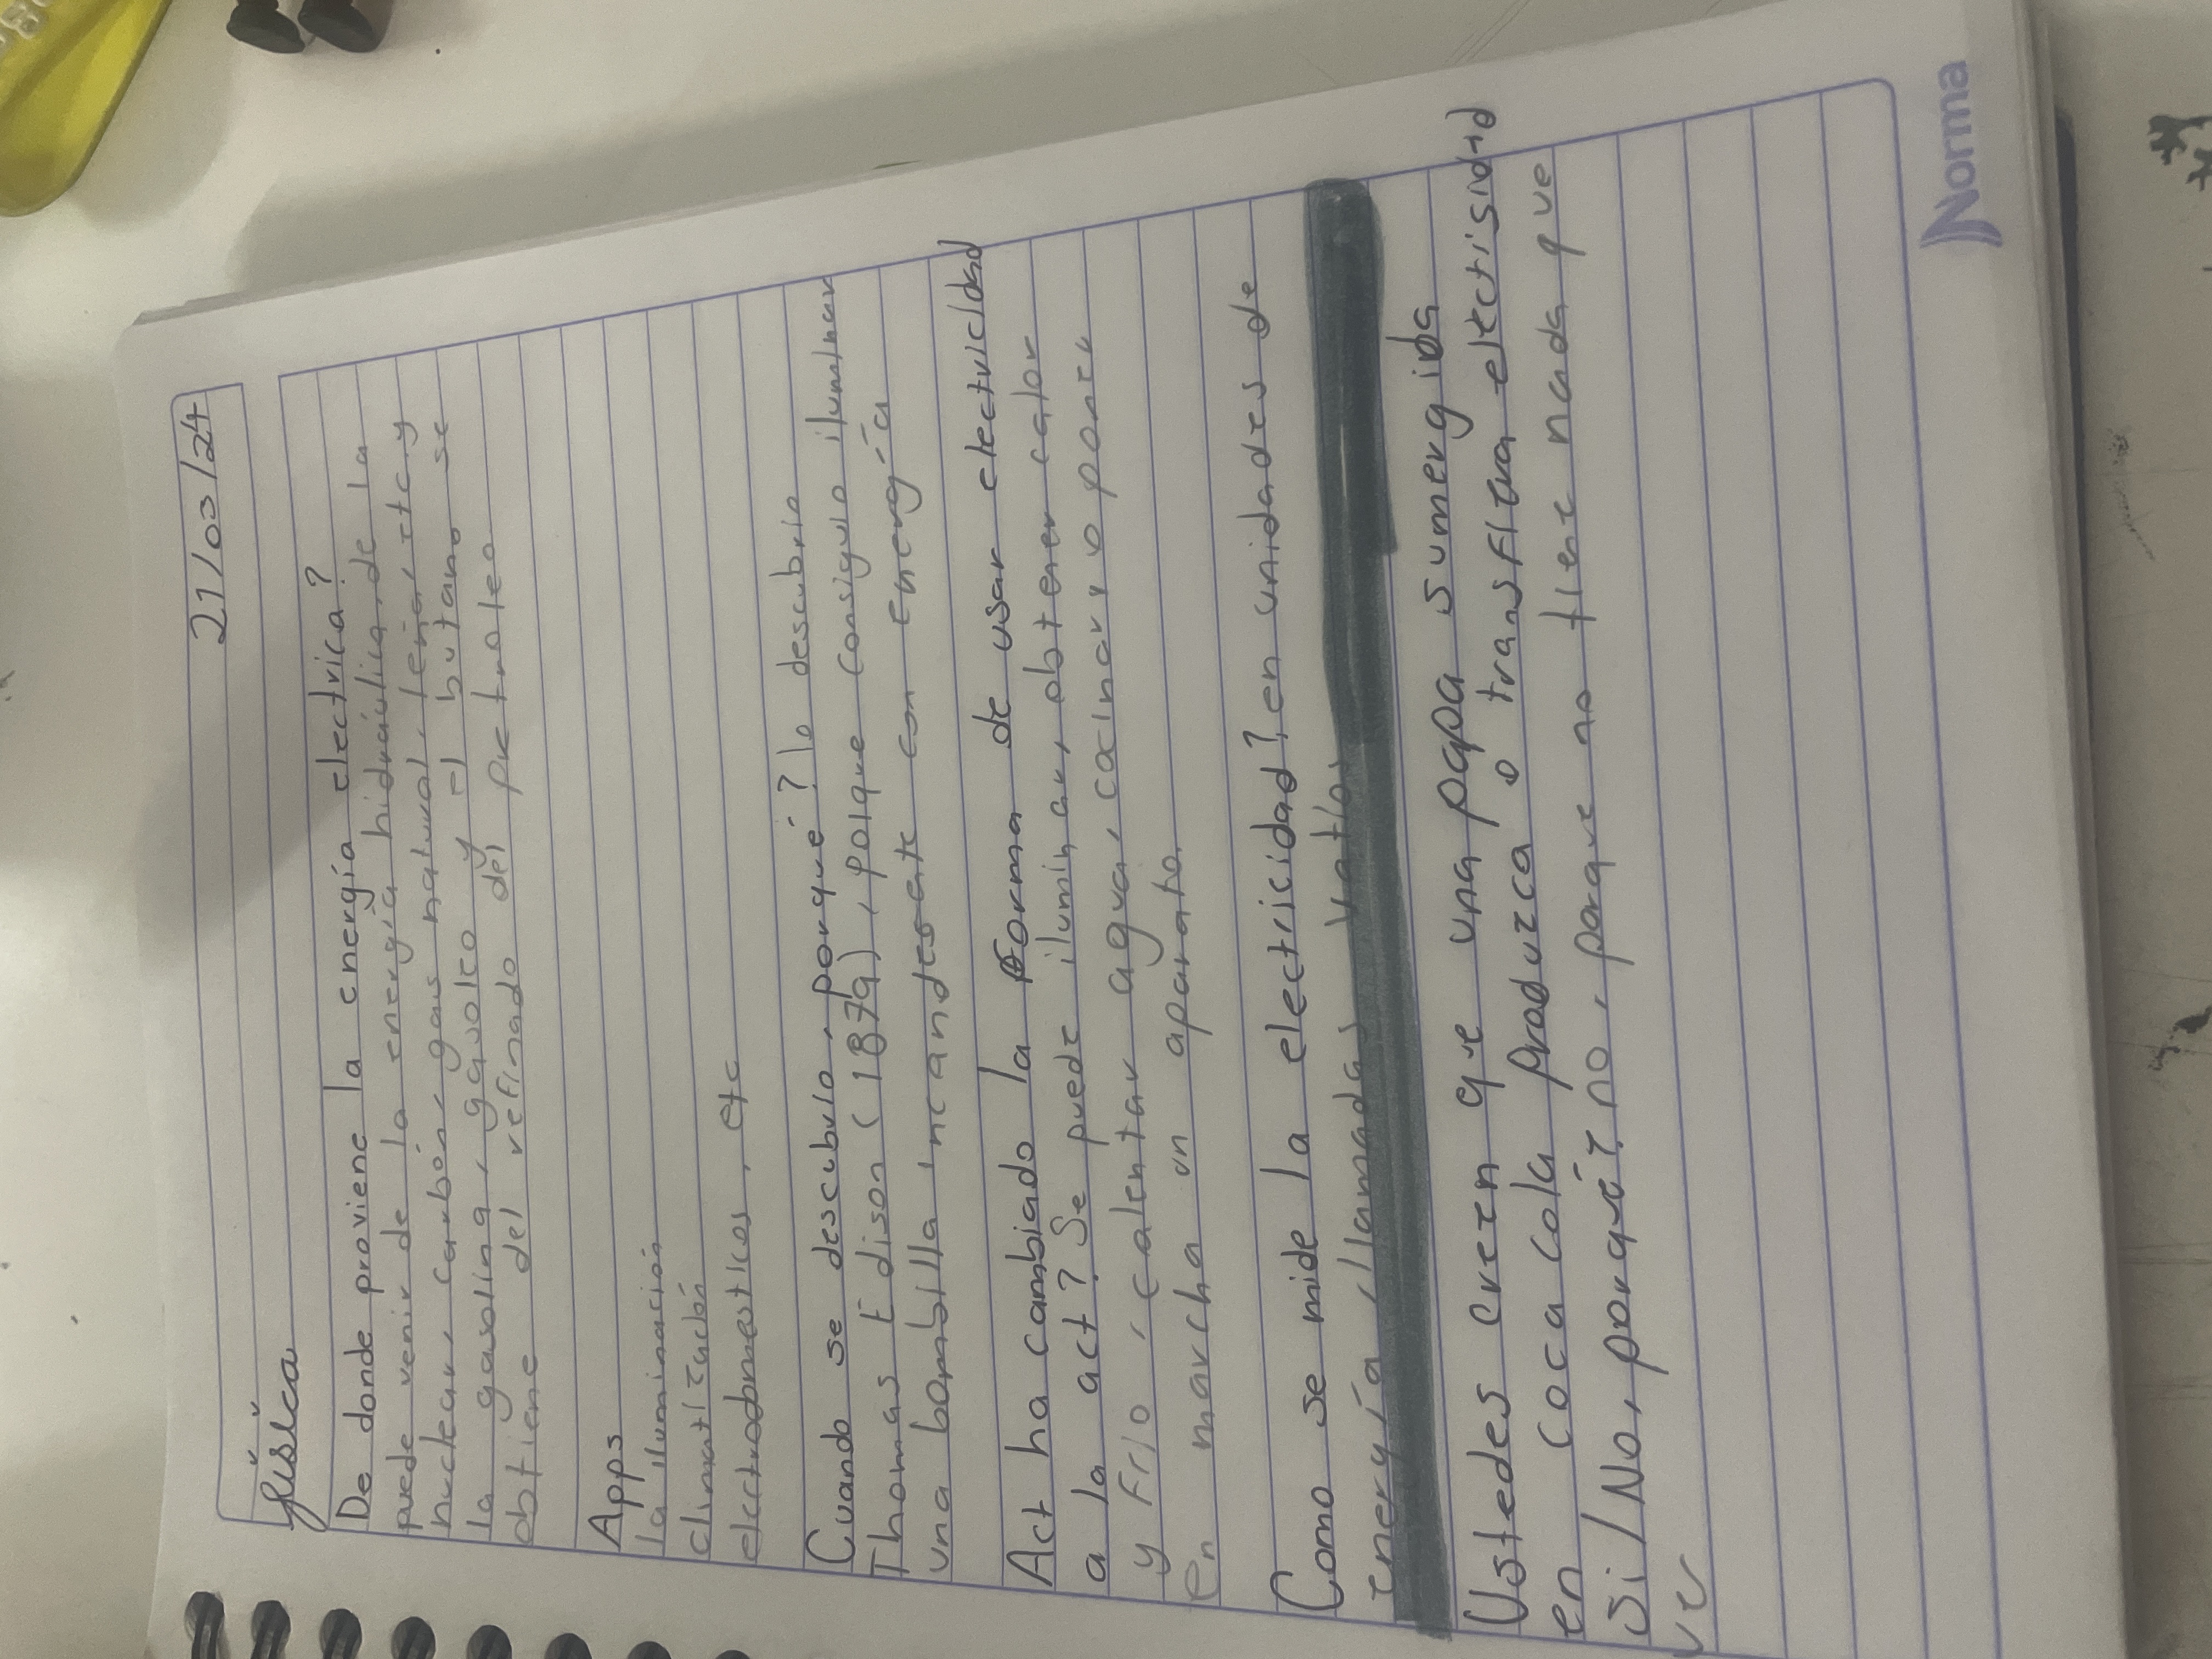 21/03/24
Física
De donde proviene la energía electrica?
puede venir de la energía hidráulica, de la
nuclear, carbón, gas natural, leña, etc y
la gasolina, gasoleo y el butano se
obtiene del refinado del petroleo
Apps
la iluminación
climatización
electrodomesticos, etc
Cuando se descubrio, porqué? lo descubrio
Thomas Edison (1879), porque consiguio iluminar
una bombilla incandescente con energía
Act ha cambiado la forma de usar electricidad
a la act? Se puede iluminar, obtener calor
y frio, calentar agua, cocinar y o poner
en marcha un aparato.
Como se mide la electricidad?, en unidades de
energía, llamadas vatios
Ustedes creen que una papa sumergida
en coca cola produzca o transfiera electrisidad
Si/No, porqué?, no, porque no tiene nada que
ver
Norma